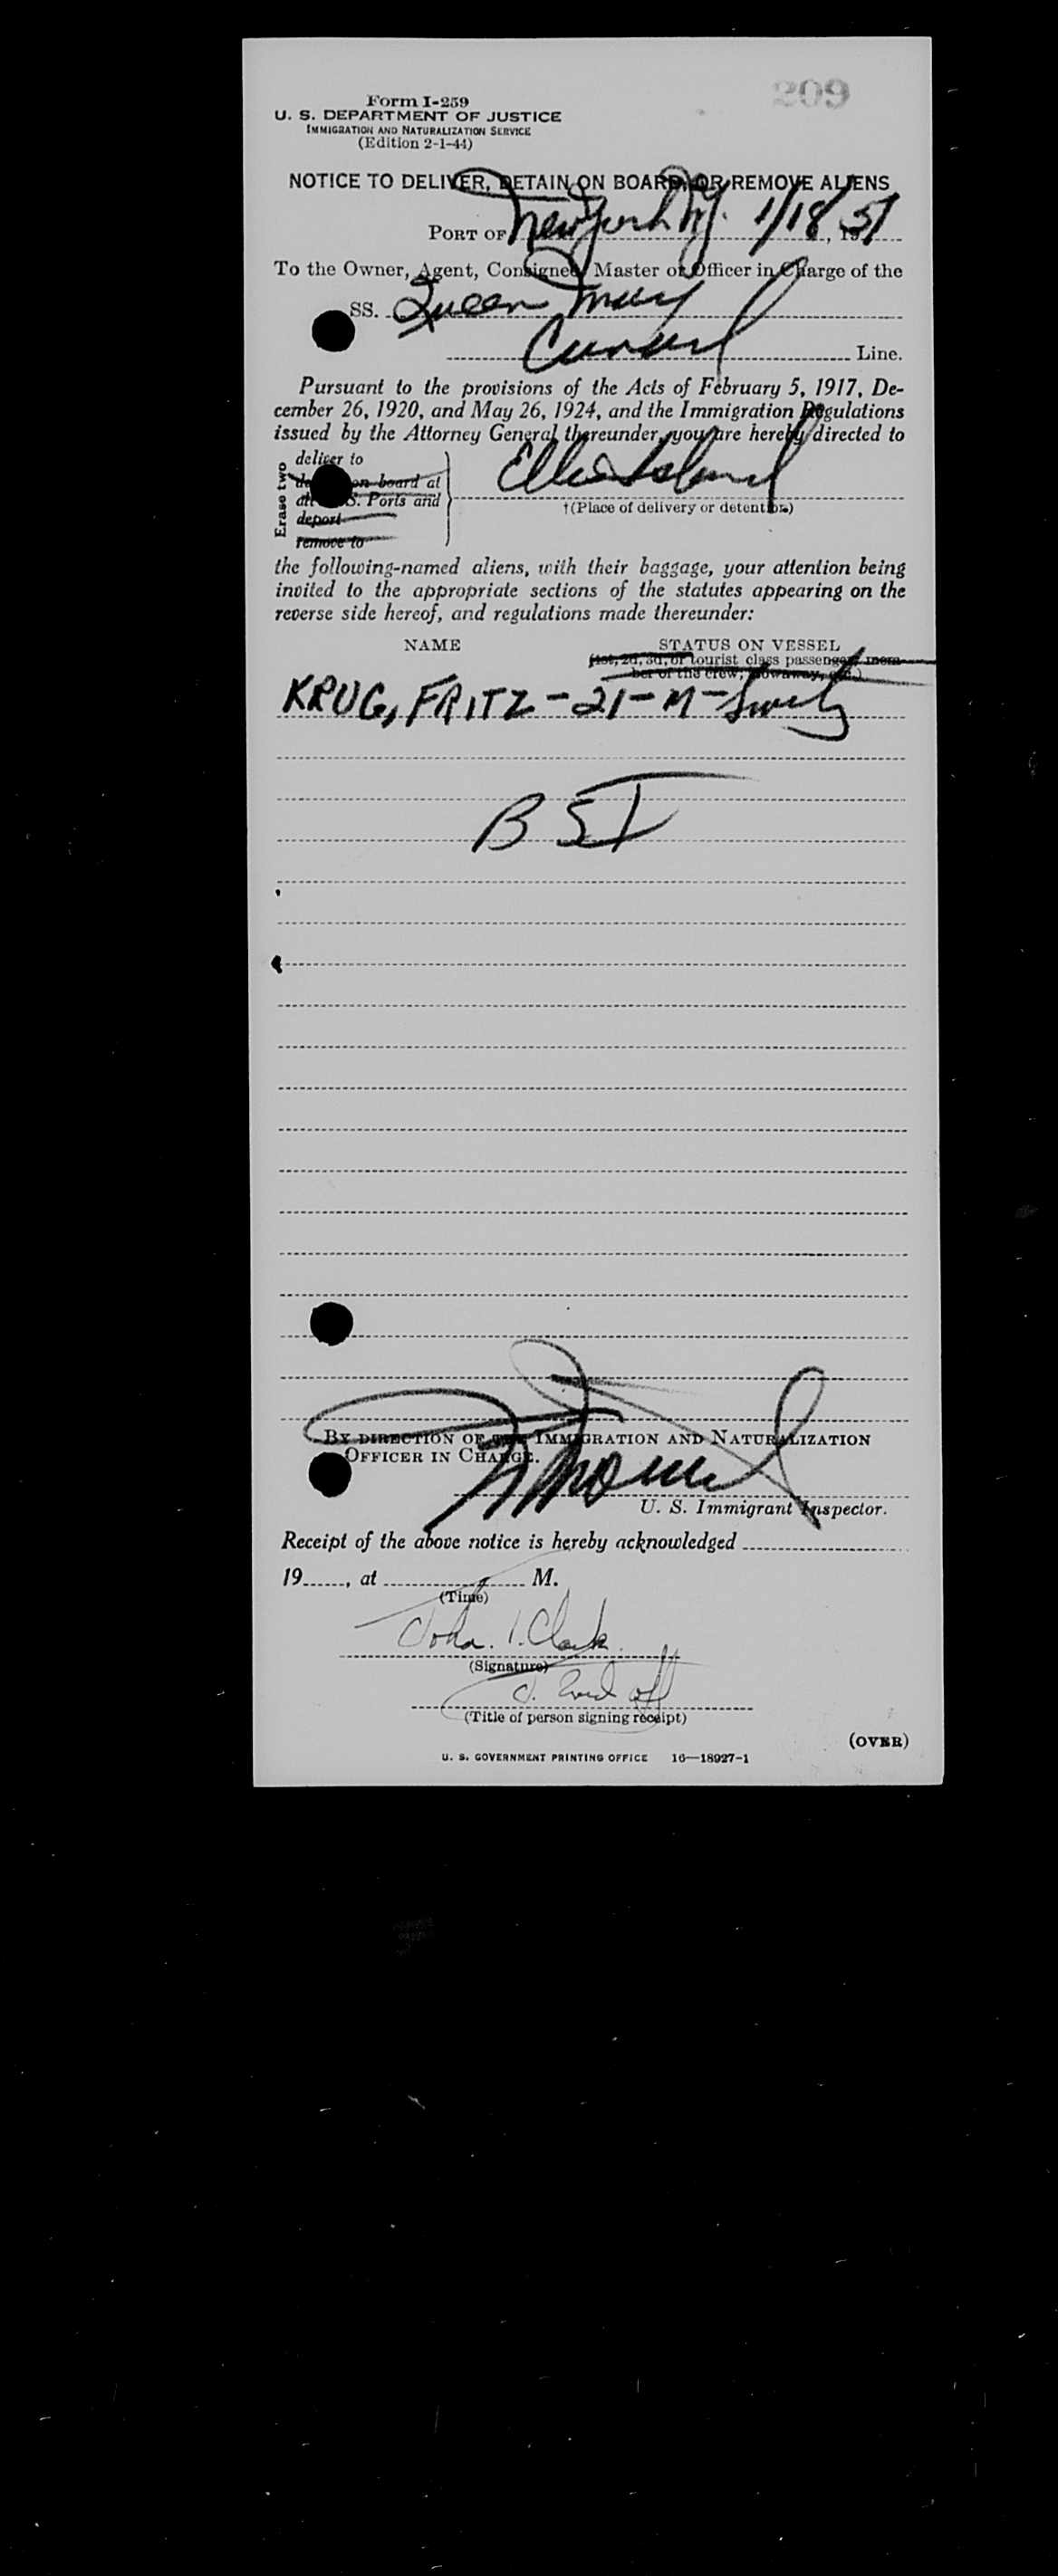 209
Form I-259
U. S. DEPARTMENT OF JUSTICE
IMMIGRATION AND NATURALIZATION SERVICE
(Edition 2-1-44)
NOTICE TO DELIVER, DETAIN ON BOARD, OR REMOVE ALIENS
PORT OF New York NY. 1/18, 1951
To the Owner, Agent, Consignee, Master or Officer in Charge of the
SS. Queen Mary
Cunard Line.
Pursuant to the provisions of the Acts of February 5, 1917, De-
cember 26, 1920, and May 26, 1924, and the Immigration Regulations
issued by the Attorney General thereunder, you are hereby directed to
Erase two
deliver to
on board at
S. Ports and
deport
remove to
Ellis Island
†(Place of delivery or detention)
the following-named aliens, with their baggage, your attention being
invited to the appropriate sections of the statutes appearing on the
reverse side hereof, and regulations made thereunder:
NAME STATUS ON VESSEL
(1st, 2d, 3d, or tourist class passenger, mem-
ber of the crew, stowaway, etc.)
KRUG, FRITZ - 21 - M -
B S I
BY DIRECTION OF THE IMMIGRATION AND NATURALIZATION
OFFICER IN CHARGE.
U. S. Immigrant Inspector.
Receipt of the above notice is hereby acknowledged
19 , at M.
(Time)
John. I. Clark
(Signature)
(Title of person signing receipt)
(OVER)
U. S. GOVERNMENT PRINTING OFFICE 16—18927-1